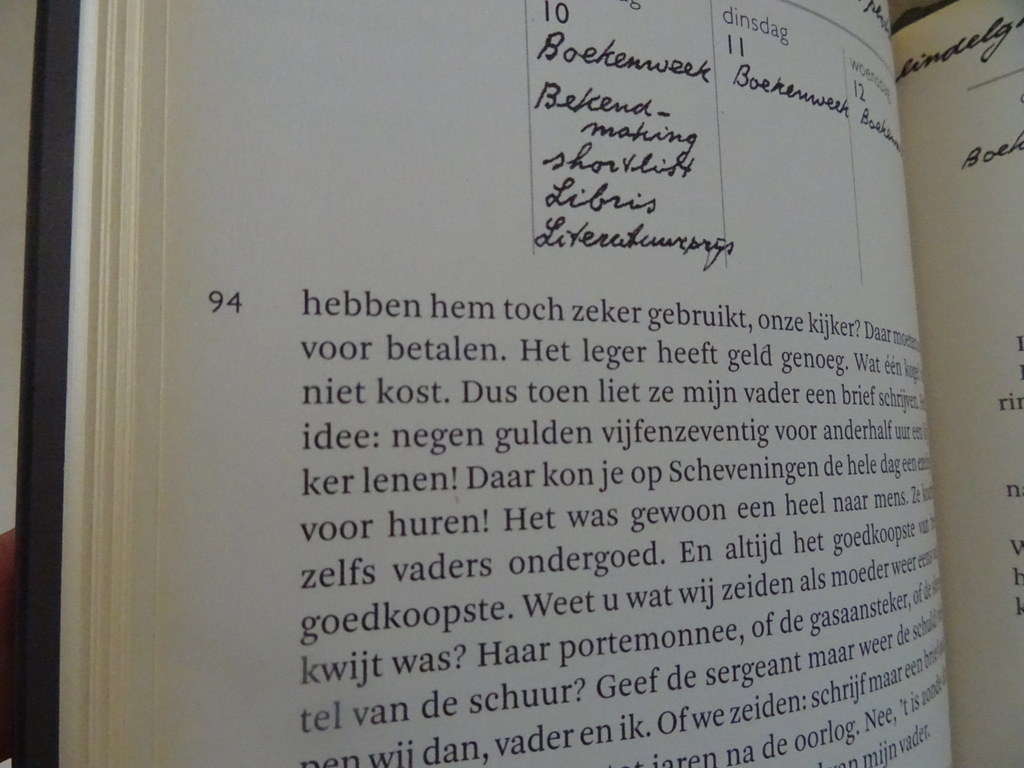 10 dinsdag
11 woensdag
12
Boekenweek Boekenweek
Bekend-
making
shortlist
Libris
Literatuurprijs
eindelg
94 hebben hem toch zeker gebruikt, onze kijker? Daar
voor betalen. Het leger heeft geld genoeg. Wat één
niet kost. Dus toen liet ze mijn vader een brief schrijven.
idee: negen gulden vijfenzeventig voor anderhalf uur een
ker lenen! Daar kon je op Scheveningen de hele dag een
voor huren! Het was gewoon een heel naar mens. Ze
zelfs vaders ondergoed. En altijd het goedkoopste van
goedkoopste. Weet u wat wij zeiden als moeder weer eens
kwijt was? Haar portemonnee, of de gasaansteker, of de
tel van de schuur? Geef de sergeant maar weer de schuld
pen wij dan, vader en ik. Of we zeiden: schrijf maar een
jaren na de oorlog. Nee, 't is zonde
van mijn vader.